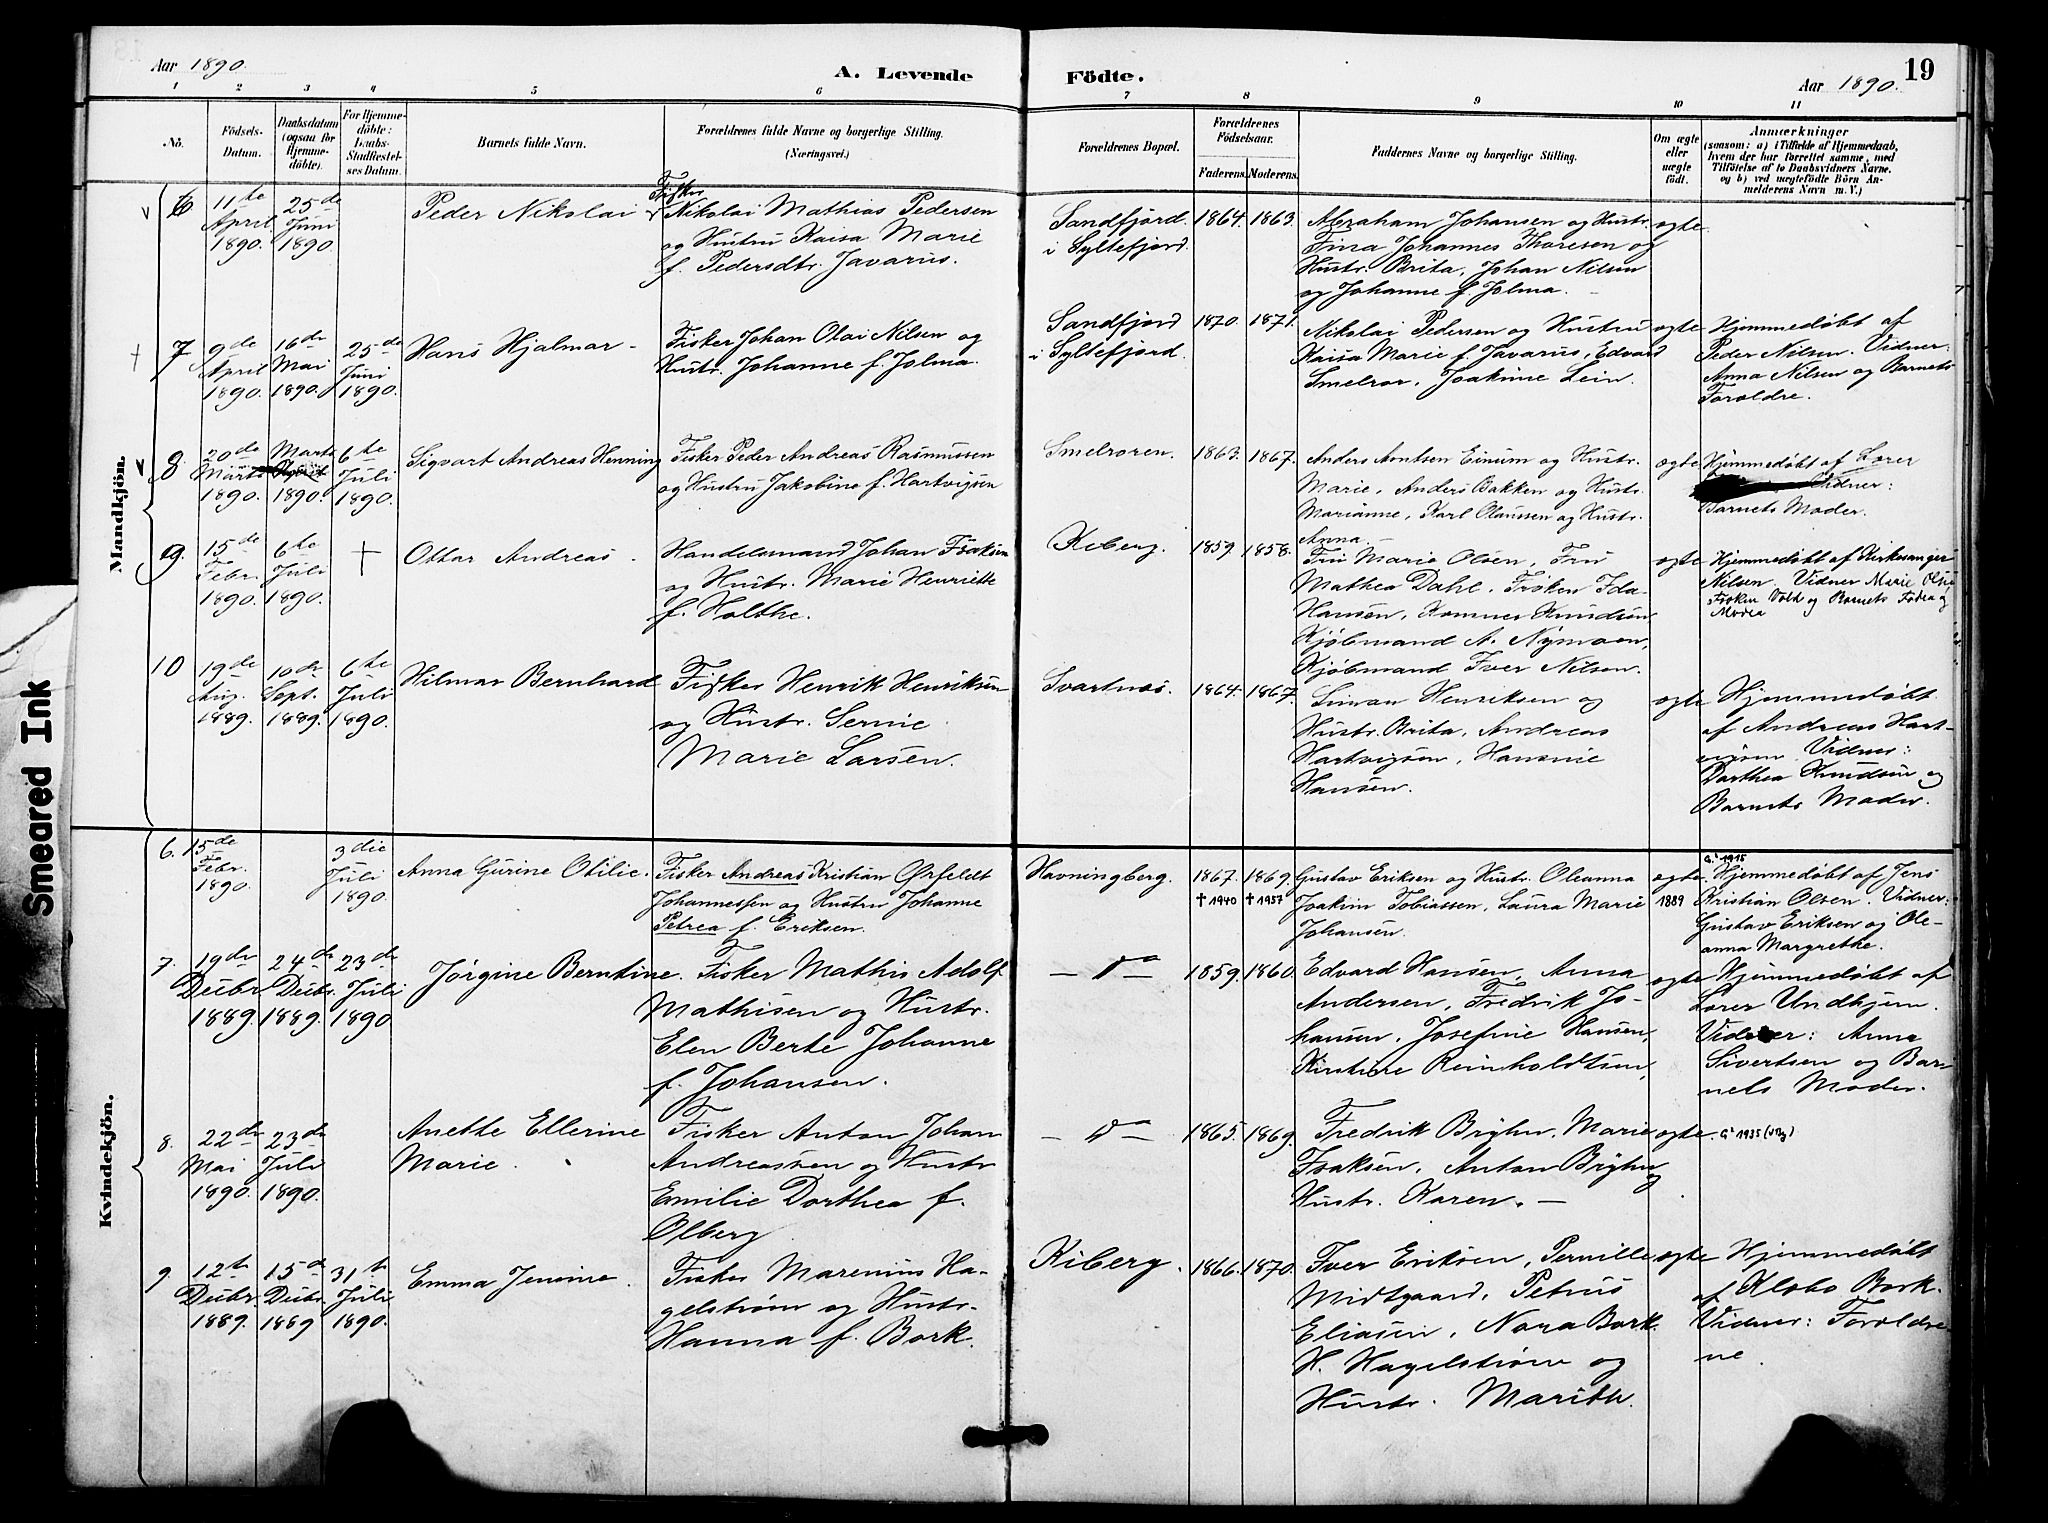 Aar 1890.
A. Levende Födte.
Aar 1890.
19
1 2 3 4 5 6 7 8 9 10 11
No.
Födsels-Datum.
Daabsdatum (ogsaa for Hjemme-döbte).
For Hjemme-döbte: Daabs-Stadfæstel-ses Datum.
Barnets fulde Navn.
Forældrenes fulde Navne og borgerlige Stilling. (Næringsvei.)
Forældrenes Bopæl.
Forældrenes Födselsaar.
Faderens. Moderens.
Faddernes Navne og borgerlige Stilling.
Om ægte eller uægte født.
Anmærkninger
(saasom: a) i Tilfælde af Hjemmedaab, hvem der har forrettet samme, med Tilföielse af to Daabsvidners Navne. og b) ved uægtefödte Börn An-melderens Navn m. V.)
Mandkjön.
6 11te April 1890. 25de Juni 1890.
Peder Nikolai
Fisker Nikolai Mathias Pedersen
og Hustru Kaisa Marie
f. Pedersdtr. Javarus.
Sandfjord
i Syltefjord.
1864. 1863.
Abraham Johansen og Hustr.
Fina Johannes Thoresen og
Hustr. Brita, Johan Nilsen
og Johanne f. Jolma.
ægte
7 9de April 1890. 16de Mai 1890. 25de Juni 1890.
Hans Hjalmar
Fisker Johan Olai Nilsen og
Hustr. Johanne f. Jolma.
Sandfjord
i Syltefjord.
1870. 1871.
Nikolai Pedersen og Hustru
Kaisa Marie f. Javarus, Edvard
Smelror, Joakime Lein.
ægte
Hjemmedøbt af
Peder Nilsen. Vidner:
Anna Nilsen og Barnets
Forældre.
8 20de Marts 1890. Marts 1890. 6te Juli 1890.
Sigvart Andreas Henning
Fisker Peder Andreas Rasmussen
og Hustru Jakobine f. Hartvigsen
Smelroren.
1863. 1867.
Anders Arntsen Einum og Hustr.
Marie, Anders Bakken og Hustr.
Marianne, Karl Olaussen og Hustr.
Anna.
ægte
Hjemmedøbt af Lærer
Vidner:
Barnets Moder.
9. 15de Febr. 1890. 6te Juli 1890. +
Ottar Andreas
Handelsmand Johan Isaksen
og Hustr. Marie Henriette
f. Holthe.
Kiberg.
1859. 1858.
Fru Marie Olsen, Fru
Mathea Dahl, Frøken Ida
Hansen, Knudsen
Kjøbmand A. Nymoen,
Kjøbmand Iver Nilsen.
ægte
Hjemmedøbt af Kirkesanger
Nilsen. Vidner Marie Olsen
Frøken Vold og Barnets Fader og
Moder
10 19de Aug. 1889. 10de Sept. 1889. 6te Juli 1890.
Hilmar Bernhard
Fisker Henrik Henriksen
og Hustr. Serine
Marie Larsen.
Svartnæs.
1864. 1867.
Siman Henriksen og
Hustr. Brita, Andreas
Hartvigsen, Hansine
Hansen.
ægte
Hjemmedøbt
af Andreas Hart-
vigsen. Vidner:
Dorthea Knudsen og
Barnets Moder.
Kvindekjön.
6. 15de Febr. 1890. 3die Juli 1890.
Anna Gurine Otilie.
Fisker Andreas Kristian Ørfeldt
Johannessen og Hustru Johanne
Petrea f. Eriksen.
Havningberg.
1867. 1869.
†1940 †1957
Gustav Eriksen og Hustr. Oleanna
Joakim Tobiassen, Laura Marie
Johansen.
ægte
1889
G. 1915
Hjemmedøbt af Jens
Kristian Olsen. Vidner:
Gustav Eriksen og Ole-
anna Margrethe.
7. 19de Decbr. 1889. 24de Decbr. 1889. 23de Juli 1890
Jørgine Berntine.
Fisker Mathis Adolf
Mathisen og Hustr.
Elen Berte Johanne
f. Johansen.
— Do —
1859. 1860.
Edvard Hansen, Anna
Andersen, Fredrik Jo-
hansen, Josefine Hansen,
Kirstine Reinholdtsen,
ægte
Hjemmedøbt af
Lærer Undhjem.
Vidner: Anna
Sivertsen og Bar-
nets Moder.
8. 22de Mai 1890. 23de Juli 1890.
Anette Ellerine
Marie.
Fisker Anton Johan
Andreassen og Hustr
Emilie Dorthea f.
Olberg
— Do —
1865. 1869.
Fredrik Bryhn, Marie
Isaksen, Anton Bryhn og
Hustr. Karen. —
ægte.
G. 1935
9 12te Decbr. 1889. 15de Decbr. 1889 31te Juli 1890.
Emma Jensine.
Fisker Marenius Ha-
gelstrøm og Hustr.
Hanna f. Bork.
Kiberg.
1866. 1870.
Iver Eriksen, Pernille
Midtgaard, Petrus
Eliasen, Nora Bork.
H. Hagelstrøm og
Hustr. Marith.
ægte
Hjemmedøbt
af Klobo Bork.
Vidner: Forældre-
ne.
Smeared Ink